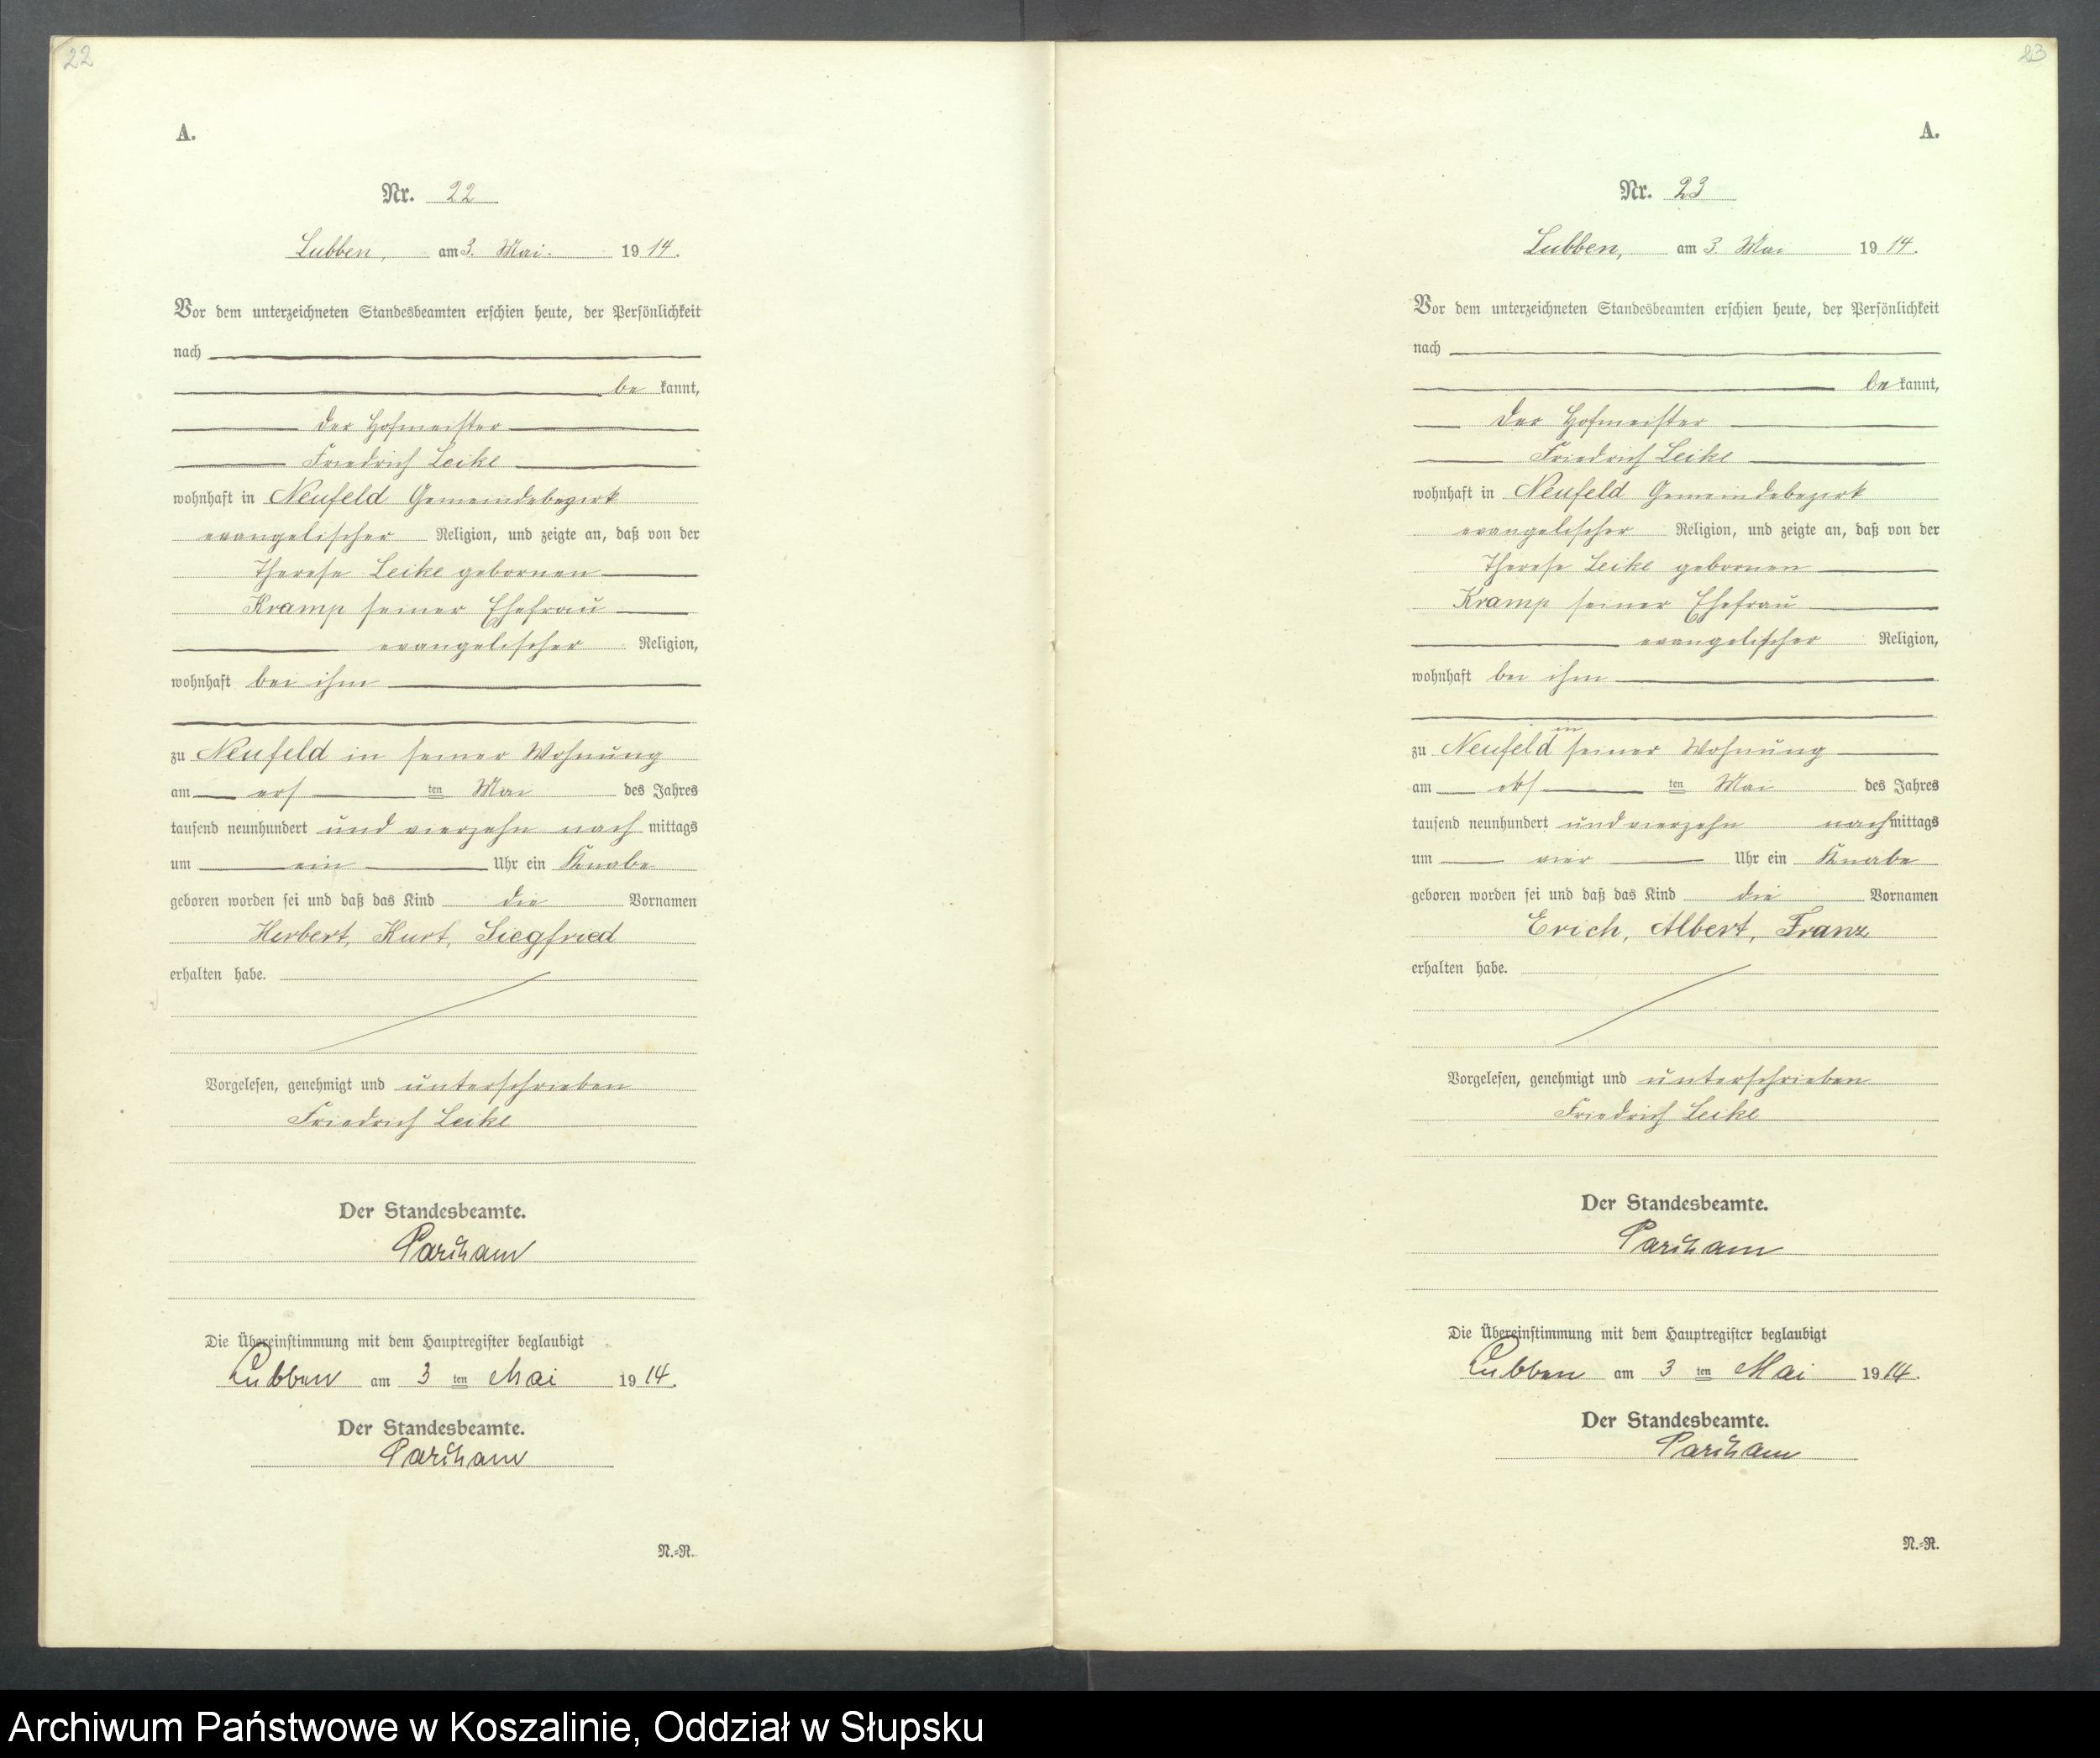 22
A.
Nr. 22
Lubben, am 3. Mai. 1914.
Vor dem unterzeichneten Standesbeamten erschien heute, der Persönlichkeit
nach
be kannt,
der Hofmeister
Friedrich Leike
wohnhaft in Neufeld Gemeindebezirk
evangelischer Religion, und zeigte an, daß von der
Therese Leike gebornen
Kramp seiner Ehefrau
evangelischer Religion,
wohnhaft bei ihm
zu Neufeld in seiner Wohnung
am ers ten Mai des Jahres
tausend neunhundert und vierzehn nach mittags
um ein Uhr ein Knabe
geboren worden sei und daß das Kind die Vornamen
Herbert, Kurt, Siegfried
erhalten habe.
Vorgelesen, genehmigt und unterschrieben
Friedrich Leike
Der Standesbeamte.
Die Übereinstimmung mit dem Hauptregister beglaubigt
Lubben am 3 ten Mai 1914.
Der Standesbeamte.
N.=R.
23
A.
Nr. 23
Lubben, am 3. Mai 1914.
Vor dem unterzeichneten Standesbeamten erschien heute, der Persönlichkeit
nach
be kannt,
Der Hofmeister
Friedrich Leike
wohnhaft in Neufeld Gemeindebezirk
evangelischer Religion, und zeigte an, daß von der
Therese Leike gebornen
Kramp seiner Ehefrau
evangelischer Religion,
wohnhaft bei ihm
zu Neufeld in seiner Wohnung
am ten Mai des Jahres
tausend neunhundert und vierzehn nach mittags
um vier Uhr ein Knabe
geboren worden sei und daß das Kind die Vornamen
Erich, Albert, Franz
erhalten habe.
Vorgelesen, genehmigt und unterschrieben
Friedrich Leike
Der Standesbeamte.
Die Übereinstimmung mit dem Hauptregister beglaubigt
Lubben am 3 ten Mai 1914.
Der Standesbeamte.
N.=R.
Archiwum Państwowe w Koszalinie, Oddział w Słupsku